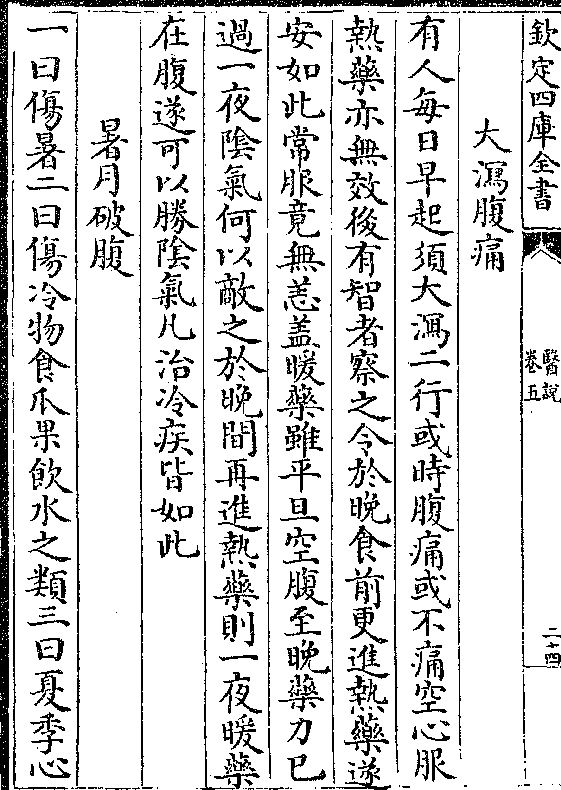 欽定四庫全書
醫說
卷五
二十四
大瀉腹痛
有人每日早起須大瀉二行或時腹痛或不痛空心服
熱藥亦無效後有智者察之令於晚食前更進熱藥遂
安如此常服竟無恙蓋暖藥雖平旦空腹至晚藥力已
過一夜陰氣何以敵之於晚間再進熱藥則一夜暖藥
在腹遂可以勝陰氣凡治冷疾皆如此
暑月破腹
一曰傷暑二曰傷冷物食瓜果飲水之類三曰夏季心